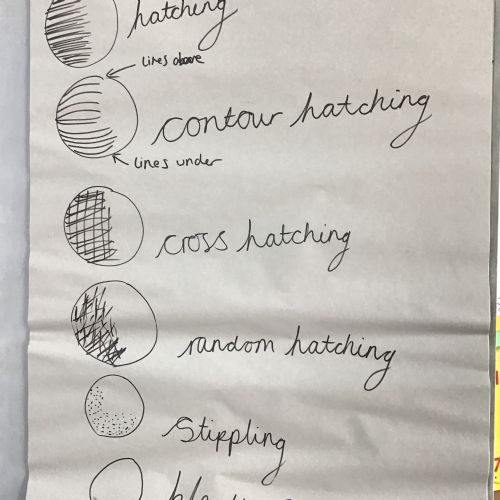 hatching
lines above
contour hatching
lines under
cross hatching
random hatching
Stippling